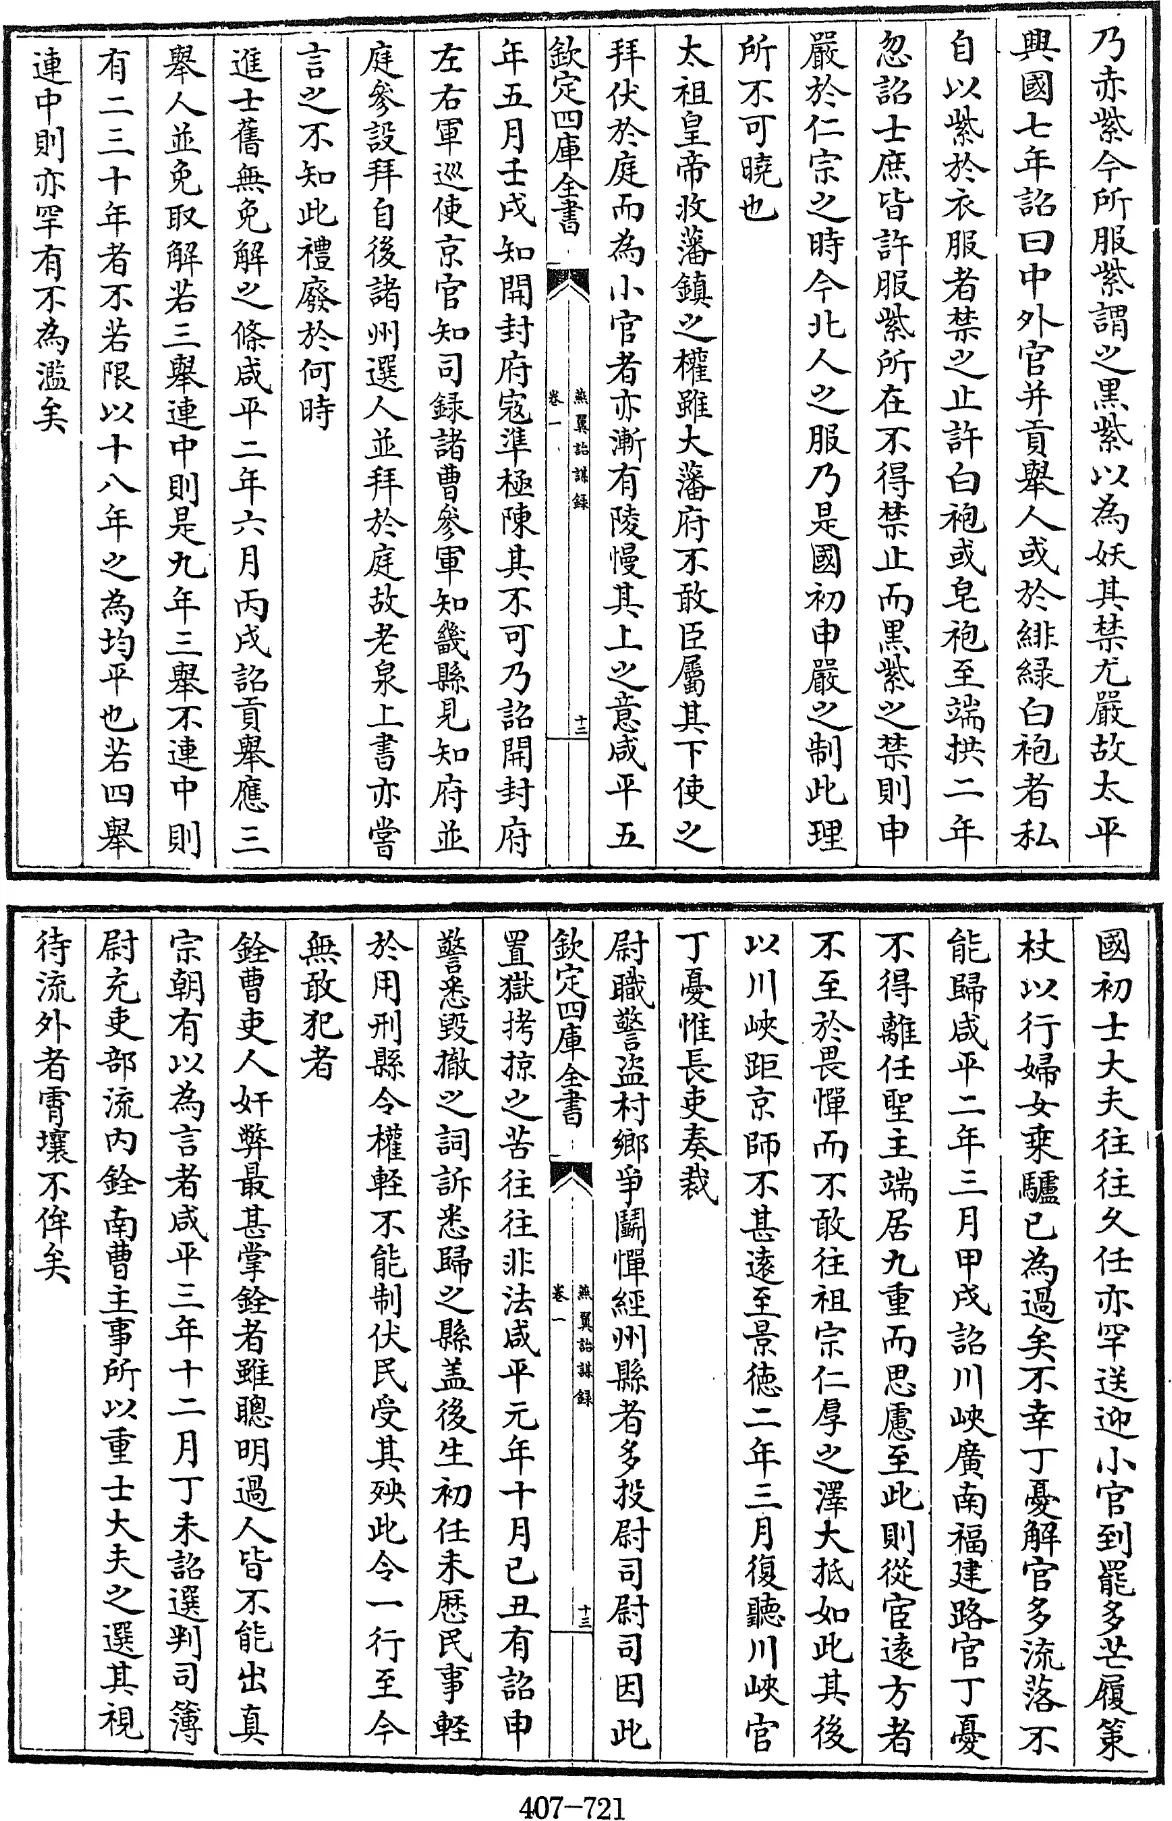 乃赤紫今所服紫謂之黒紫以為妖其禁尤嚴故太平
興國七年詔曰中外官并貢舉人或於緋緑白袍者私
自以紫於衣服者禁之止許白袍或皂袍至端拱二年
忽詔士庶皆許服紫所在不得禁止而黒紫之禁則申
嚴於仁宗之時今北人之服乃是國初申嚴之制此理
所不可曉也
太祖皇帝收藩鎮之權雖大藩府不敢臣屬其下使之
拜伏於庭而為小官者亦漸有陵慢其上之意咸平五
欽定四庫全書
燕翼詒謀録
卷一
十二
年五月壬戌知開封府冦準極陳其不可乃詔開封府
左右軍巡使京官知司録諸曹參軍知畿縣見知府並
庭參設拜自後諸州選人並拜於庭故老泉上書亦嘗
言之不知此禮廢於何時
進士舊無免解之條咸平二年六月丙戌詔貢舉應三
舉人並免取解若三舉連中則是九年三舉不連中則
有二三十年者不若限以十八年之為均平也若四舉
連中則亦罕有不為濫矣
國初士大夫往往久任亦罕送迎小官到罷多芒履策
杖以行婦女乘驢已為過矣不幸丁憂解官多流落不
能歸咸平二年三月甲戌詔川峽廣南福建路官丁憂
不得離任聖主端居九重而思慮至此則從宦遠方者
不至於畏憚而不敢往祖宗仁厚之澤大抵如此其後
以川峽距京師不甚遠至景徳二年三月復聽川峽官
丁憂惟長吏奏裁
尉職警盜村鄉爭鬭憚經州縣者多投尉司尉司因此
欽定四庫全書
燕翼詒謀録
卷一
十三
置獄拷掠之苦往往非法咸平元年十月已丑有詔申
警悉毀撤之詞訴悉歸之縣盖後生初任未歴民事輕
於用刑縣令權輕不能制伏民受其殃此令一行至今
無敢犯者
銓曹吏人奸弊最甚掌銓者雖聰明過人皆不能出真
宗朝有以為言者咸平三年十二月丁未詔選判司簿
尉充吏部流内銓南曹主事所以重士大夫之選其視
待流外者霄壤不侔矣
407-721